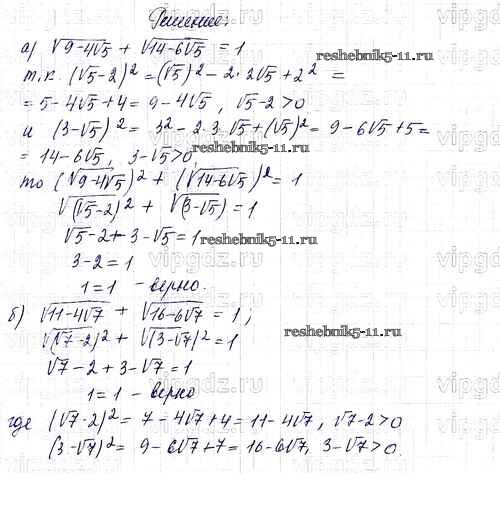 Решение:
а) √9-4√5 + √14-6√5 = 1
т.к. (√5-2)² = (√5)² - 2·2√5 + 2² =
= 5-4√5+4 = 9-4√5, √5-2>0
и (3-√5)² = 3² - 2·3·√5 + (√5)² = 9-6√5+5 =
= 14-6√5, 3-√5>0,
то (√9-4√5)² + (√14-6√5)² = 1
√(√5-2)² + √(3-√5) = 1
√5-2+3-√5=1
3-2=1
1=1 - верно.
б) √11-4√7 + √16-6√7 = 1;
√(√7-2)² + √(3-√7)² = 1
√7-2+3-√7=1
1=1 - верно
где (√7-2)² = 7-4√7+4 = 11-4√7, √7-2>0
(3-√7)² = 9-6√7+7 = 16-6√7, 3-√7>0.
reshebnik5-11.ru
reshebnik5-11.ru
reshebnik5-11.ru
reshebnik5-11.ru
vipgdz.ru